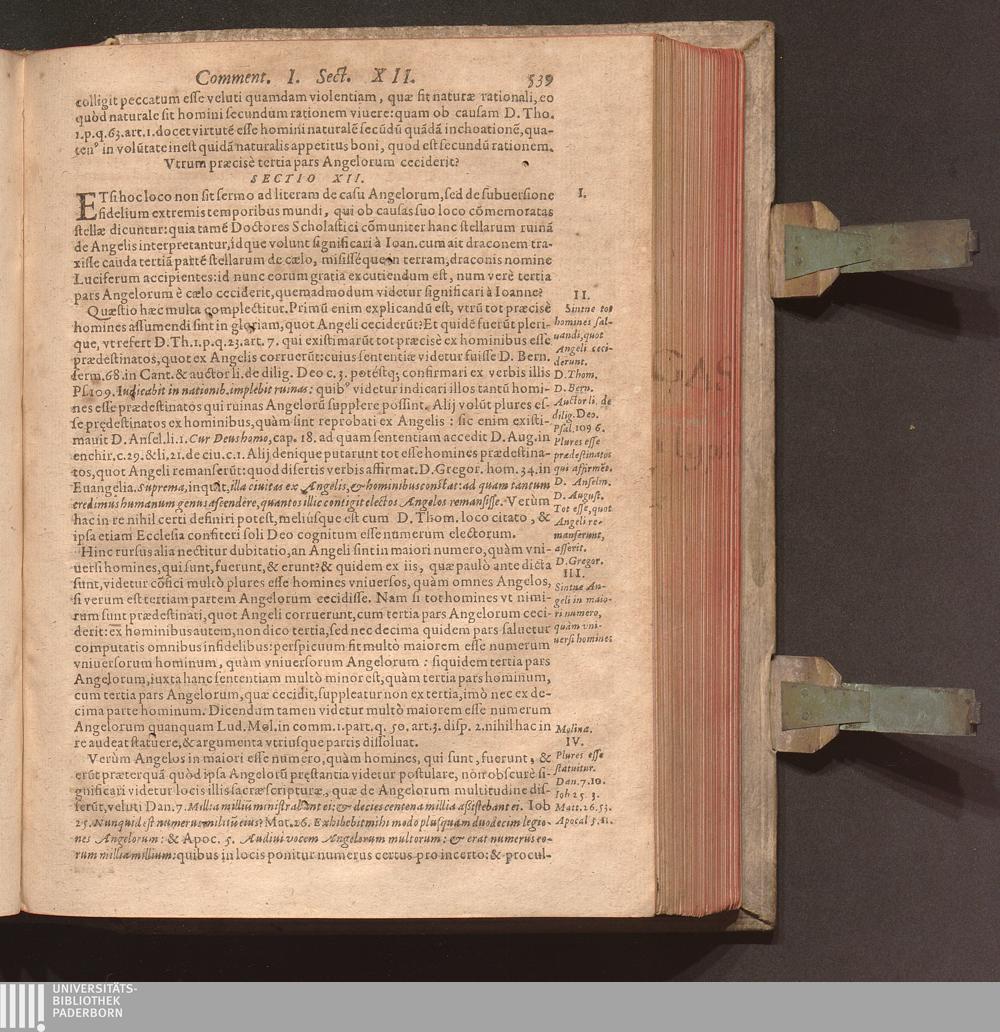 Comment. I. Sect. XII. 539
colligit peccatum esse veluti quamdam violentiam, quæ fit naturæ rationali, eo
quòd naturale sit homini secundum rationem viuere: quam ob causam D. Tho.
1.p.q.63.art.1.docet virtutē esse homini naturalē secūdū quādā inchoationē, qua-
tenꝰ in volūtate inest quidā naturalis appetitus boni, quod est secundū rationem.
Vtrum præcisè tertia pars Angelorum ceciderit?
SECTIO XII.
ETsi hoc loco non sit sermo ad literam de casu Angelorum, sed de subuersione
fidelium extremis temporibus mundi, qui ob causas suo loco cōmemoratas
stellæ dicuntur: quia tamē Doctores Scholastici cōmuniter hanc stellarum ruinā
de Angelis interpretantur, idque volunt significari à Ioan. cum ait draconem tra-
xisse cauda tertiā partē stellarum de cælo, misissē que in terram, draconis nomine
Luciferum accipientes: id nunc eorum gratia excutiendum est, num verè tertia
pars Angelorum è cælo ceciderit, quemadmodum videtur significari à Ioanne?
I.
Quæstio hæc multa complectitur. Primū enim explicandū est, vtrū tot præcisè
homines assumendi sint in gloriam, quot Angeli ceciderūt? Et quidē fuerūt pleri-
que, vt refert D. Th. 1.p.q.23.art. 7. qui existimarūt tot præcisè ex hominibus esse
prædestinatos, quot ex Angelis corruerūt: cuius sententiæ videtur fuisse D. Bern.
serm.68.in Cant. & auctor li. de dilig. Deo c.3. potestq; confirmari ex verbis illis
Ps.109. Iudicabit in nationib. implebit ruinas: quibꝰ videtur indicari illos tantū homi-
nes esse prædestinatos qui ruinas Angelorū supplere possint. Alij volūt plures es-
se prędestinatos ex hominibus, quàm sint reprobati ex Angelis: sic enim existi-
mauit D. Ansel. li.1. Cur Deus homo, cap. 18. ad quam sententiam accedit D. Aug. in
enchir. c.29. & li. 21. de ciu. c.1. Alij denique putarunt tot esse homines prædestina-
tos, quot Angeli remanserūt: quod disertis verbis affirmat D. Gregor. hom. 34. in
Euangelia. Suprema, inquit, illa ciuitas ex Angelis, & hominibus constat: ad quam tantum
credimus humanum genus ascendere, quantos illic contigit electos Angelos remansisse. Verùm
hac in re nihil certi definiri potest, meliúsque est cum D. Thom. loco citato, &
ipsa etiam Ecclesia confiteri soli Deo cognitum esse numerum electorum.
II.
Sintne tot
homines sal-
uandi, quot
Angeli ceci-
derunt.
D. Thom.
D. Bern.
Auctor li. de
dilig. Deo.
Psal. 109 6.
Plures esse
prædestinatos
qui affirmēt.
D. Anselm.
D. August.
Tot esse, quot
Angeli re-
manserunt,
asserit.
D. Gregor.
Hinc rursus alia nectitur dubitatio, an Angeli sint in maiori numero, quàm vni-
uersi homines, qui sunt, fuerunt, & erunt? & quidem ex iis, quæ paulò ante dicta
sunt, videtur cōfici multò plures esse homines vniuersos, quàm omnes Angelos,
si verum est tertiam partem Angelorum cecidisse. Nam si tot homines vt nimi-
rum sunt prædestinati, quot Angeli corruerunt, cum tertia pars Angelorum ceci-
derit: ex hominibus autem, non dico tertia, sed nec decima quidem pars saluetur
computatis omnibus infidelibus: perspicuum fit multò maiorem esse numerum
vniuersorum hominum, quàm vniuersorum Angelorum: siquidem tertia pars
Angelorum, iuxta hanc sententiam multò minor est, quàm tertia pars hominum,
cum tertia pars Angelorum, quæ cecidit, suppleatur non ex tertia, imò nec ex de-
cima parte hominum. Dicendum tamen videtur multò maiorem esse numerum
Angelorum quanquam Lud. Mol. in comm. 1. part. q. 50. art. 3. disp. 2. nihil hac in
re audeat statuere, & argumenta vtriusque partis dissoluat.
III.
Sintne An-
geli in maio-
ri numero,
quàm vni-
uersi homines
Molina.
Verùm Angelos in maiori esse numero, quàm homines, qui sunt, fuerunt, &
erūt præterquā quòd ipsa Angelorū pręstantia videtur postulare, non obscurè si-
gnificari videtur locis illis sacræ scripturæ, quæ de Angelorum multitudine dis-
serūt, veluti Dan. 7. Millia milliū ministrabant ei: & decies centena millia assistebant ei. Iob
25. Nunquid est numerus militū eius? Mat. 26. Exhibebit mihi modo plusquam duodecim legio-
nes Angelorum: & Apoc. 5. Audiui vocem Angelorum multorum: & erat numerus eo-
rum millia millium: quibus in locis ponitur numerus certus pro incerto: & procul-
IV.
Plures esse
statuitur.
Dan. 7. 10.
Iob 25. 3.
Matt. 26. 53.
Apocal 5. 11.
UNIVERSITÄTS-
BIBLIOTHEK
PADERBORN